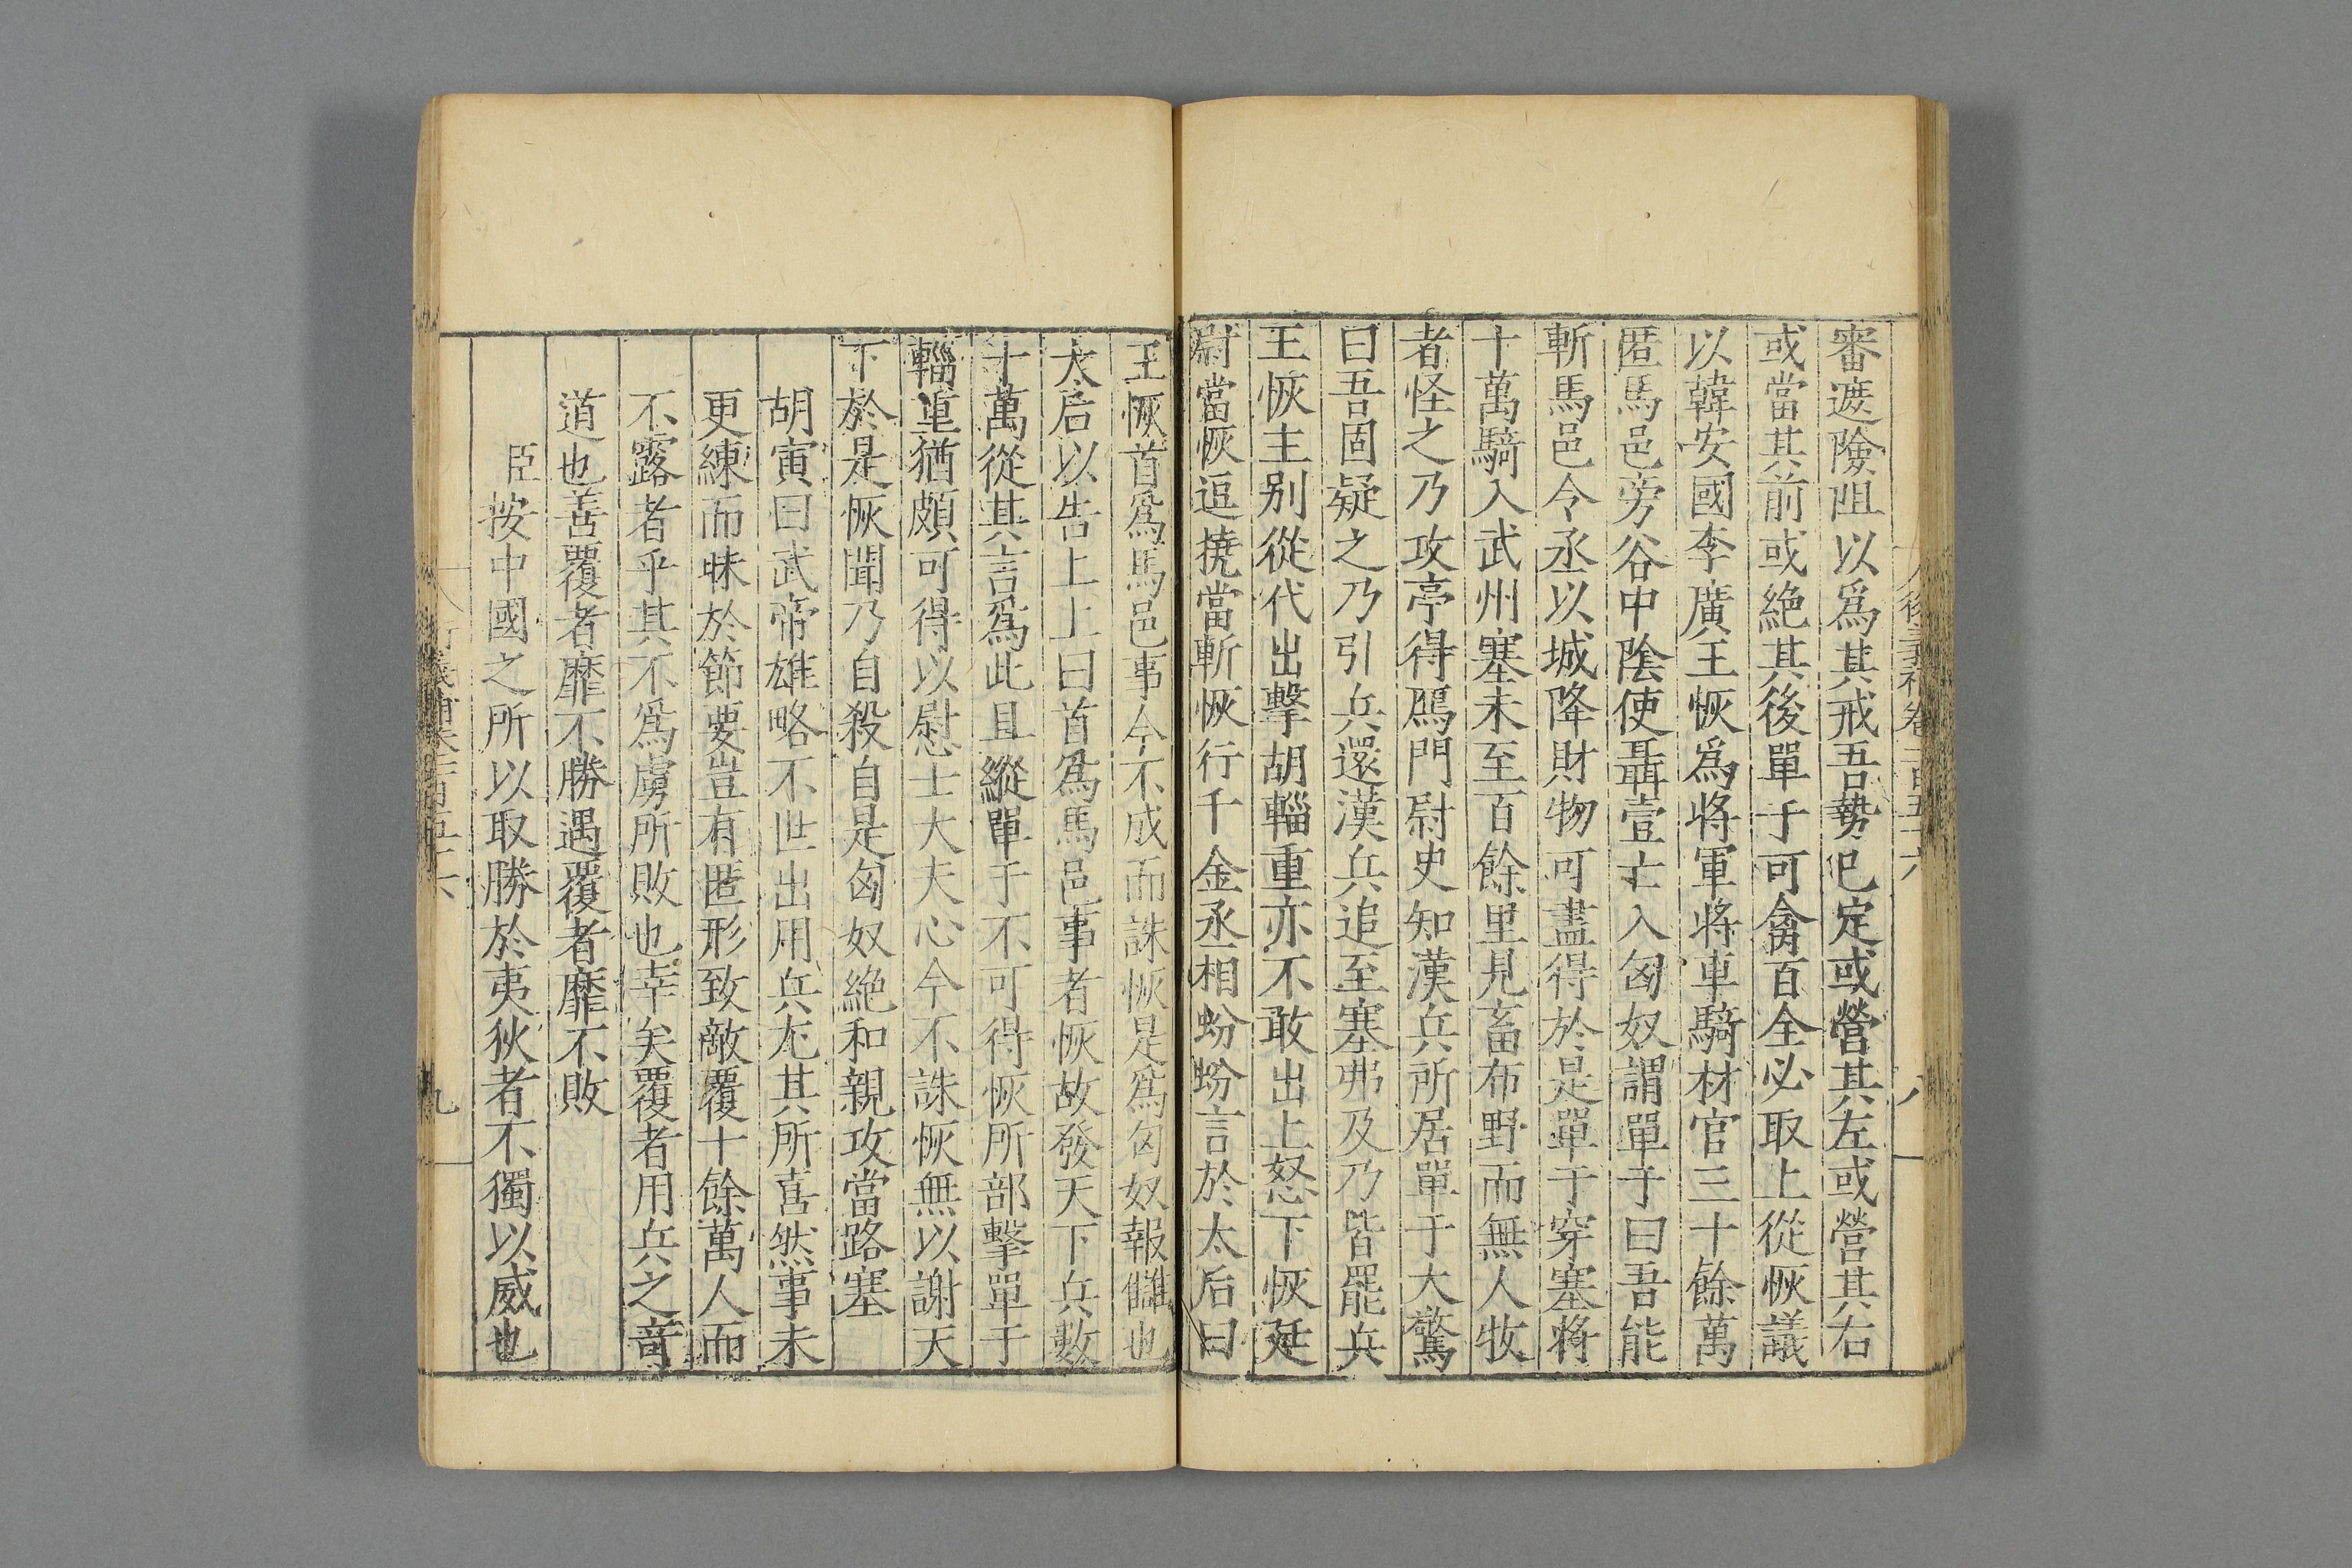 審遮險阻以爲其戒吾勢已定或營其左或營其右
或當其前或絶其後單于可禽百全必取上從恢議
以韓安國李廣王恢爲將軍將車騎材官三十餘萬
匿馬邑旁谷中陰使聶壹亡入匈奴謂單于曰吾能
斬馬邑令丞以城降財物可盡得於是單于穿塞將
十萬騎入武州塞未至百餘里見畜布野而無人牧
者怪之乃攻亭得鴈門尉史知漢兵所居單于大驚
曰吾固疑之乃引兵還漢兵追至塞弗及乃皆罷兵
王恢主别從代出擊胡輜重亦不敢出上怒下恢廷
尉當恢逗撓當斬恢行千金丞相蚡蚡言於太后曰
王恢首爲馬邑事今不成而誅恢是爲匈奴報讎也
太后以告上上曰首爲馬邑事者恢故發天下兵數
十萬從其言爲此且縱單于不可得恢所部擊單于
輜重猶頗可得以慰士大夫心今不誅恢無以謝天
下於是恢聞乃自殺自是匈奴絶和親攻當路塞
胡寅曰武帝雄略不世出用兵尤其所喜然事未
更練而昧於節要豈有匿形致敵覆十餘萬人而
不露者乎其不爲虜所敗也幸矣覆者用兵之竒
道也善覆者靡不勝遇覆者靡不敗
臣按中國之所以取勝於夷狄者不獨以威也
九